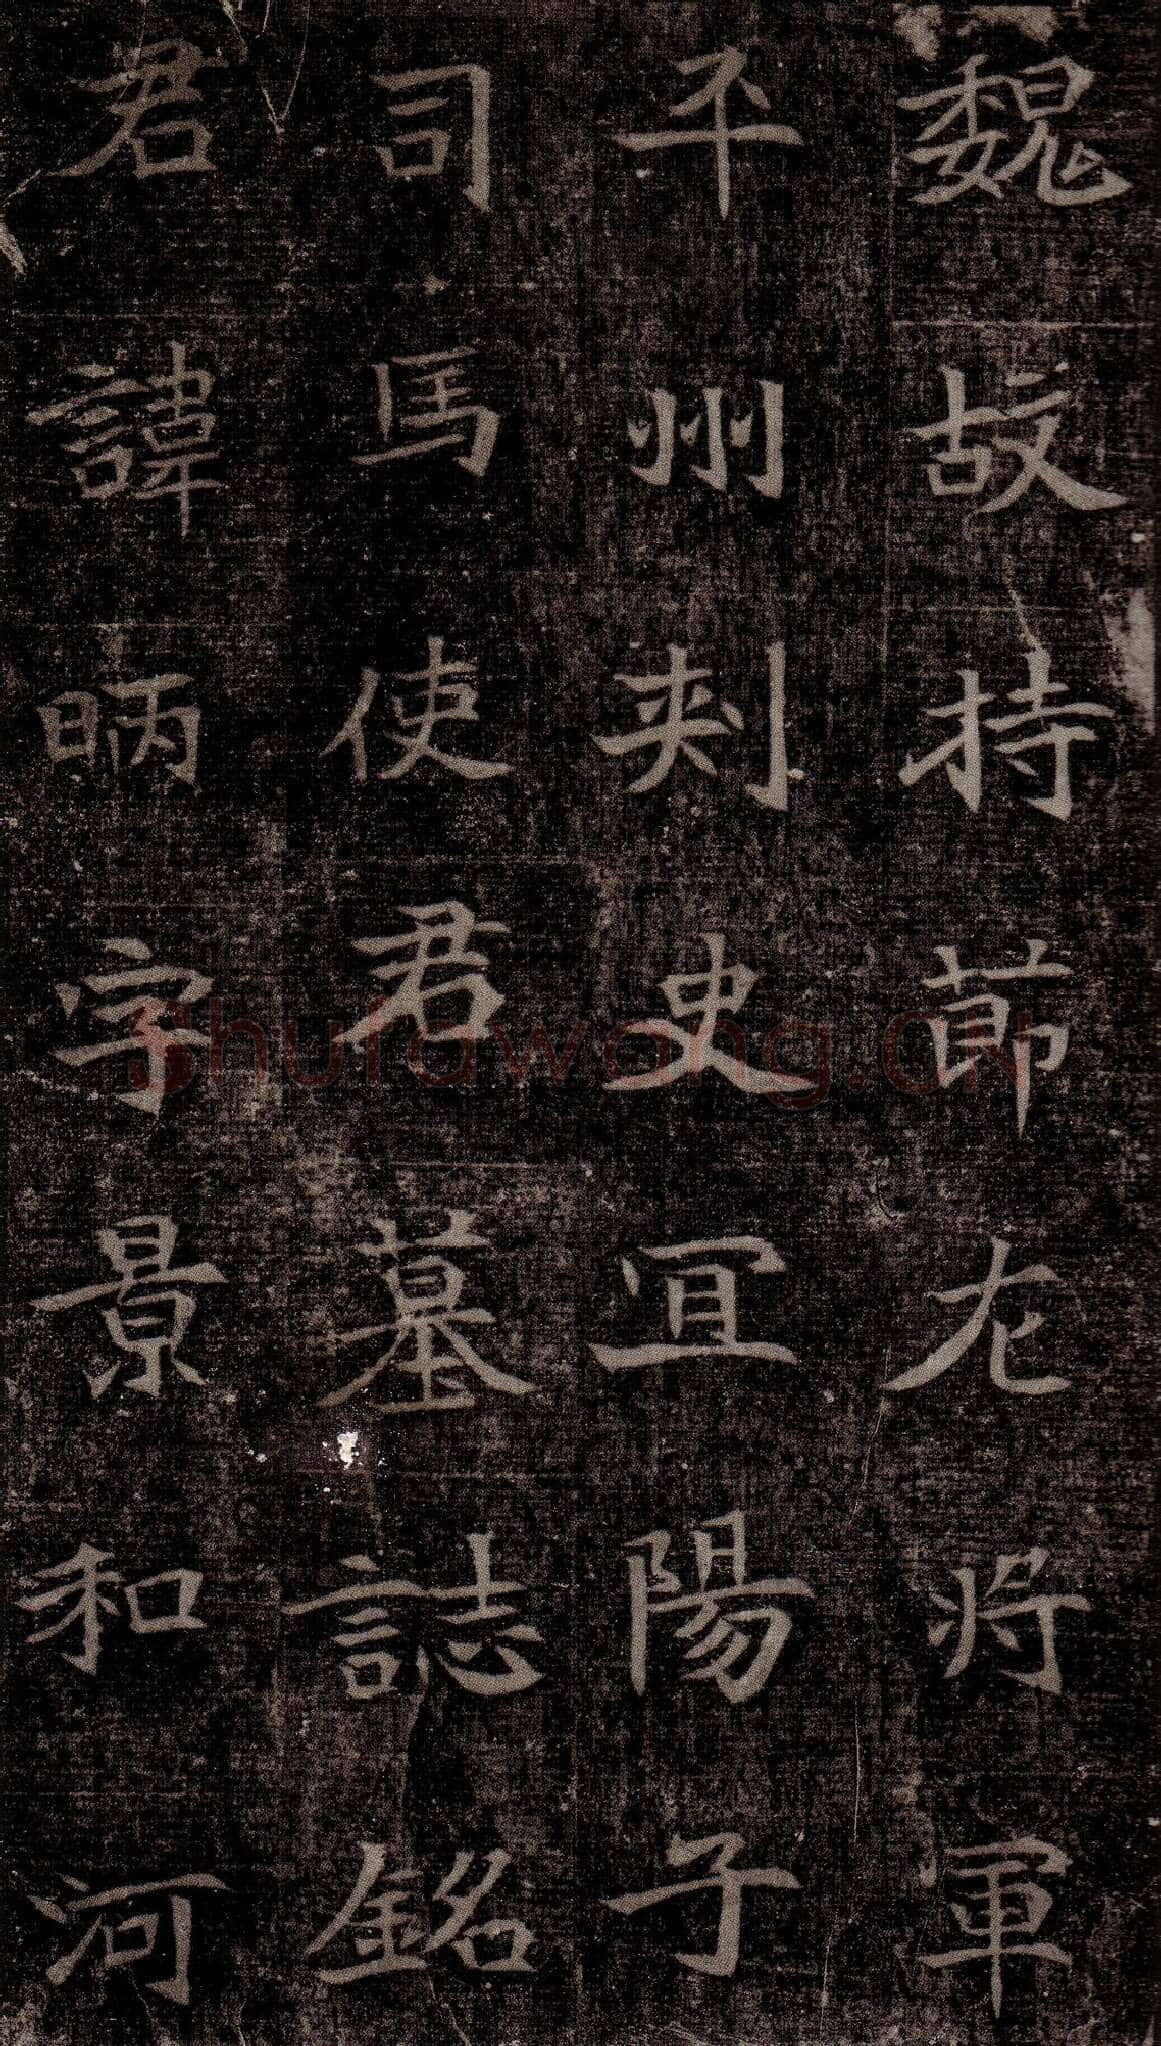 魏故持節左將軍
平州刺史宜陽子
司馬使君墓誌銘
君諱昞字景和河
Shufawang.CN